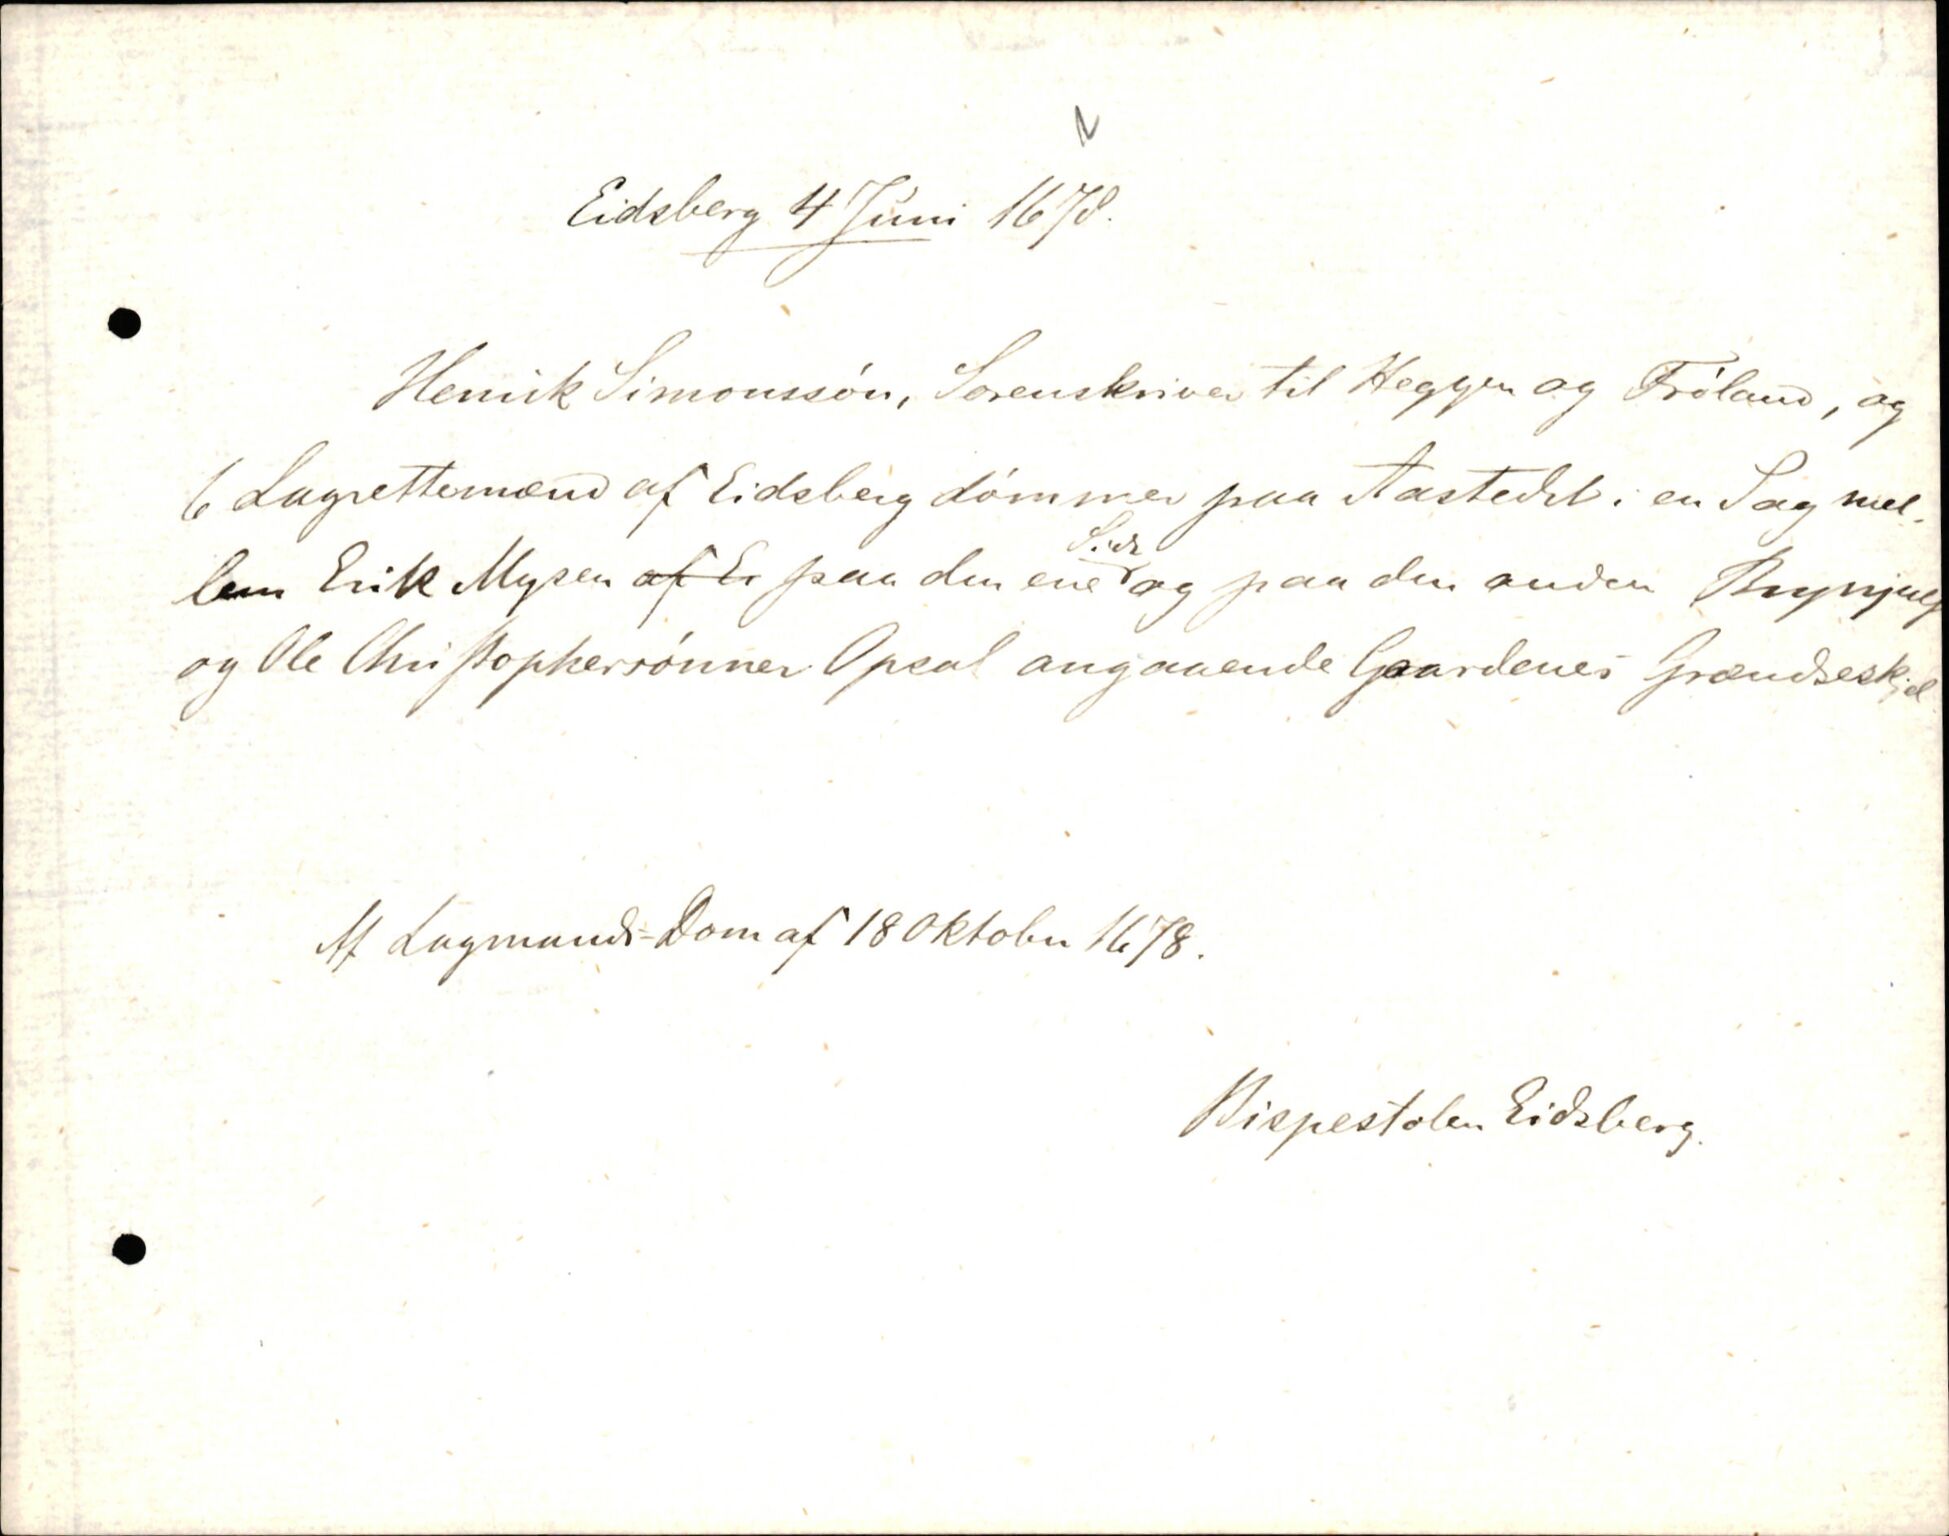 Eidsberg 4 Juni 1678.
Henrik Simonssön, Sorenskriver til Heggen og Fröland, og
6 Lagrettemænd af Eidsberg dömmer paa Aastedet i en Sag mel-
lem Erik Mysen af Ei paa den ene Side og paa den anden Brynjulf
og Ole Christophersönner Opsal angaaende Gaardenes Grændseskjel
Af Lagmands-Dom af 18 Oktober 1678.
Bispestolen Eidsberg.